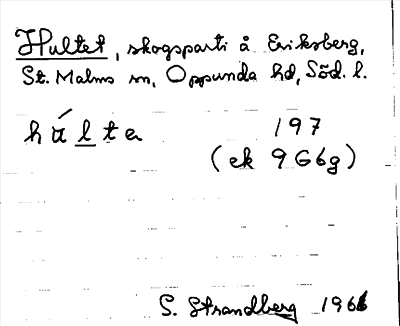 Hultet, skogsparti å Eriksberg,
St. Malms sn, Oppunda hd, Söd. l.
húlte 197
(ek 9G6g)
S. Strandberg 1966